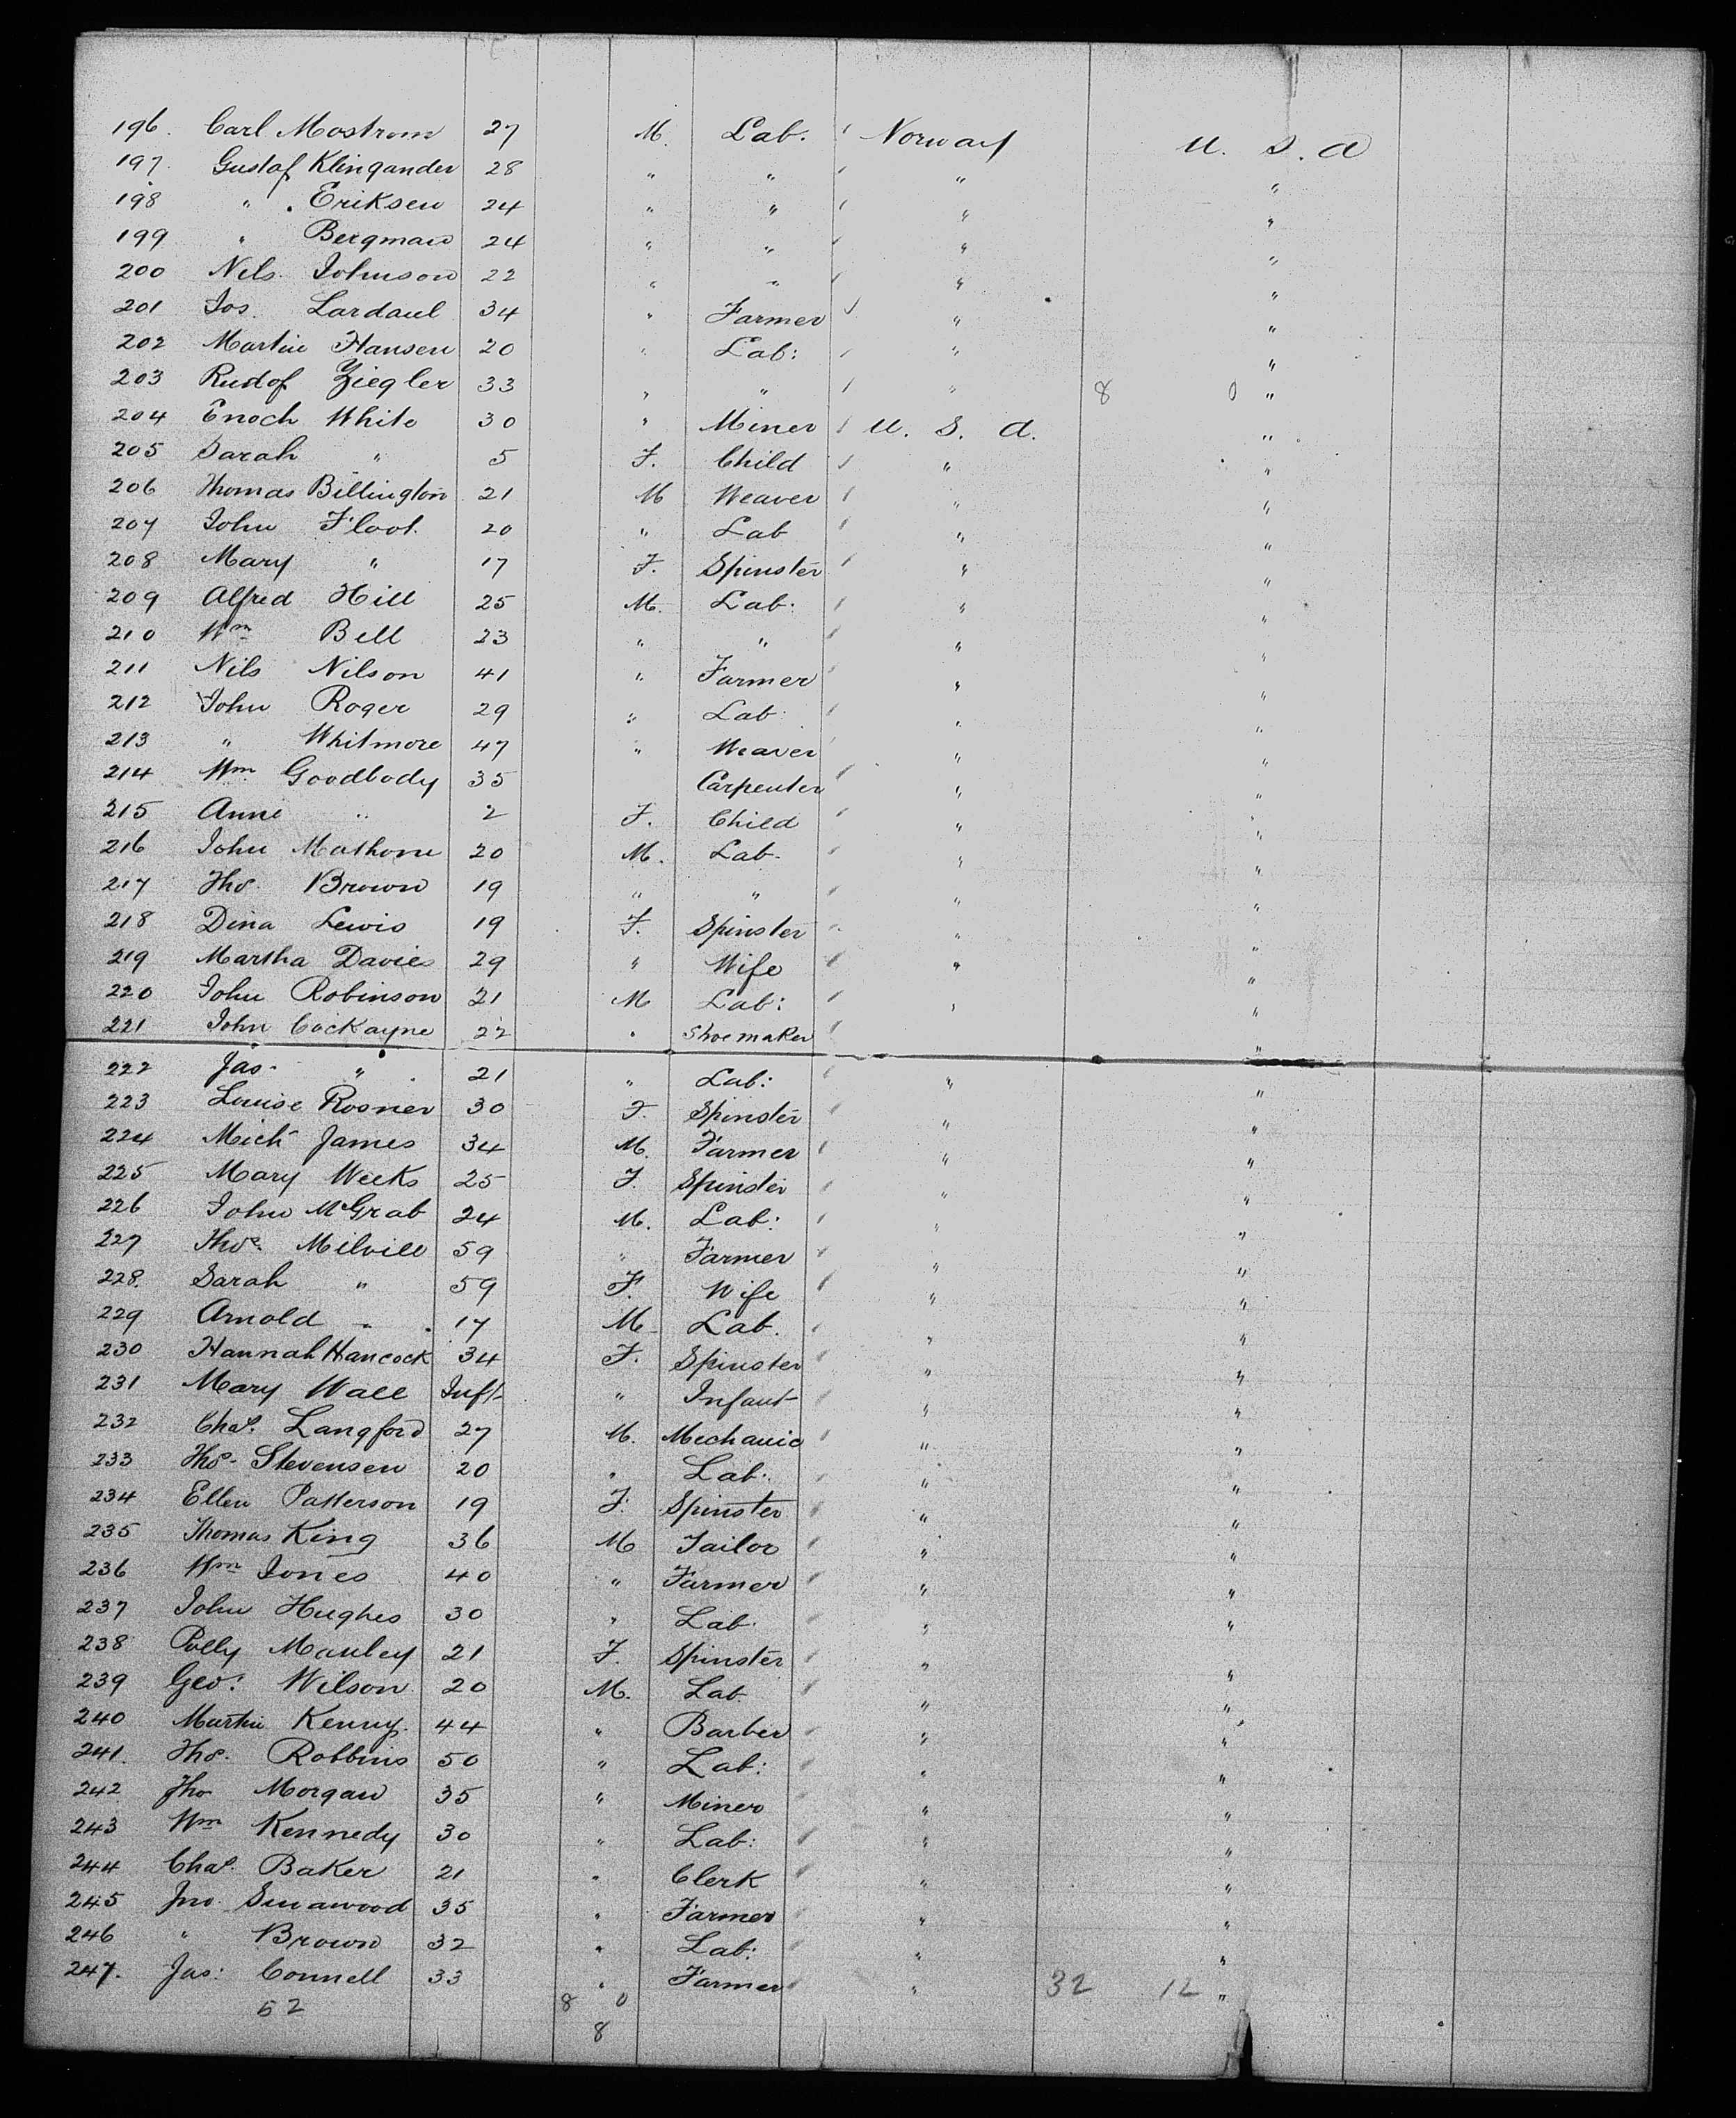 196. Carl Mostrom 27 M. Lab. Norway U. S. A
197. Gustaf Klingander 28 " " " "
198 " Eriksen 24 " " " "
199 " Bergman 24 " " " "
200 Nels Johnson 22 " " " "
201 Jos. Lardaul 34 " Farmer " "
202 Martin Hansen 20 " Lab: " "
203 Rudof Ziegler 33 " " " 8 0 "
204 Enoch White 30 " Miner U. S. A. "
205 Sarah " 5 F. Child " "
206 Thomas Billington 21 M Weaver " "
207 John Floot. 20 " Lab " "
208 Mary " 17 F. Spinster " "
209 Alfred Hill 25 M. Lab. " "
210 Wm Bell 23 " " " "
211 Nils Nilson 41 " Farmer " "
212 John Roger 29 " Lab. " "
213 " Whitmore 47 " Weaver " "
214 Wm Goodbody 35 Carpenter " "
215 Anne " 2 F. Child " "
216 John Mathone 20 M. Lab. " "
217 Tho. Brown 19 " " " "
218 Dina Lewis 19 F. Spinster " "
219 Martha Davies 29 " Wife " "
220 John Robinson 21 M Lab: " "
221 John Cockayne 22 " Shoemaker "
222 Jas. " 21 " Lab: " "
223 Louise Rosner 30 F. Spinster " "
224 Mich James 34 M. Farmer " "
225 Mary Weeks 25 F. Spinster " "
226 John McGrab 24 M. Lab: " "
227 Thos. Milvill 59 " Farmer " "
228. Sarah " 59 F. Wife " "
229 Arnold " 17 M Lab. " "
230 Hannah Hancock 34 F. Spinster " "
231 Mary Wall Inft " Infant " "
232 Chas. Langford 27 M. Mechanic " "
233 Thos. Stevensen 20 " Lab. " "
234 Ellen Patterson 19 F. Spinster " "
235 Thomas King 36 M Tailor " "
236 Wm Jones 40 " Farmer " "
237 John Hughes 30 " Lab. " "
238 Polly Manley 21 F. Spinster " "
239 Geo: Wilson 20 M. Lab. " "
240 Martin Kenny. 44 " Barber " "
241. Thos. Robbins 50 " Lab: " "
242 Tho Morgan 35 " Miner " "
243 Wm Kennedy 30 " Lab: " "
244 Chas. Baker 21 " Clerk " "
245 Jno. 35 " Farmer " "
246 " Brown 32 " Lab: " "
247. Jas: Connell 33 " Farmer " 32 12 "
52 8 0
8